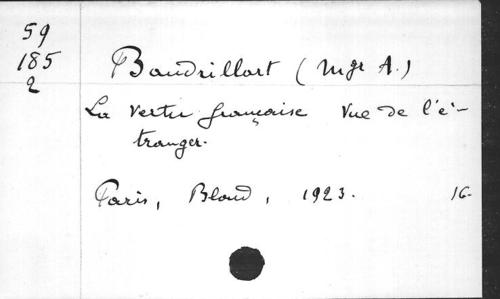 59
185
2
Baudrillart (Mgr A.)
La vertu française vue de l'é-
tranger.
Paris, Bloud, 1923. 16.